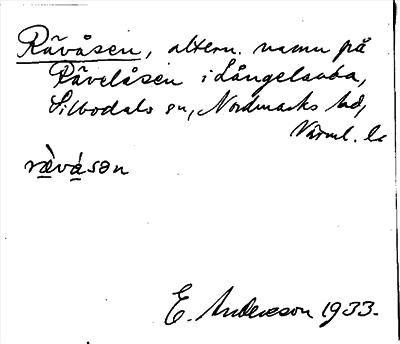 Rävåsen, altern. namn på
Rävelåsen i Långelanda,
Silbodals sn, Nordmarks hd,
Värml. l.
rằvá̱sən
E. Andersson 1933.